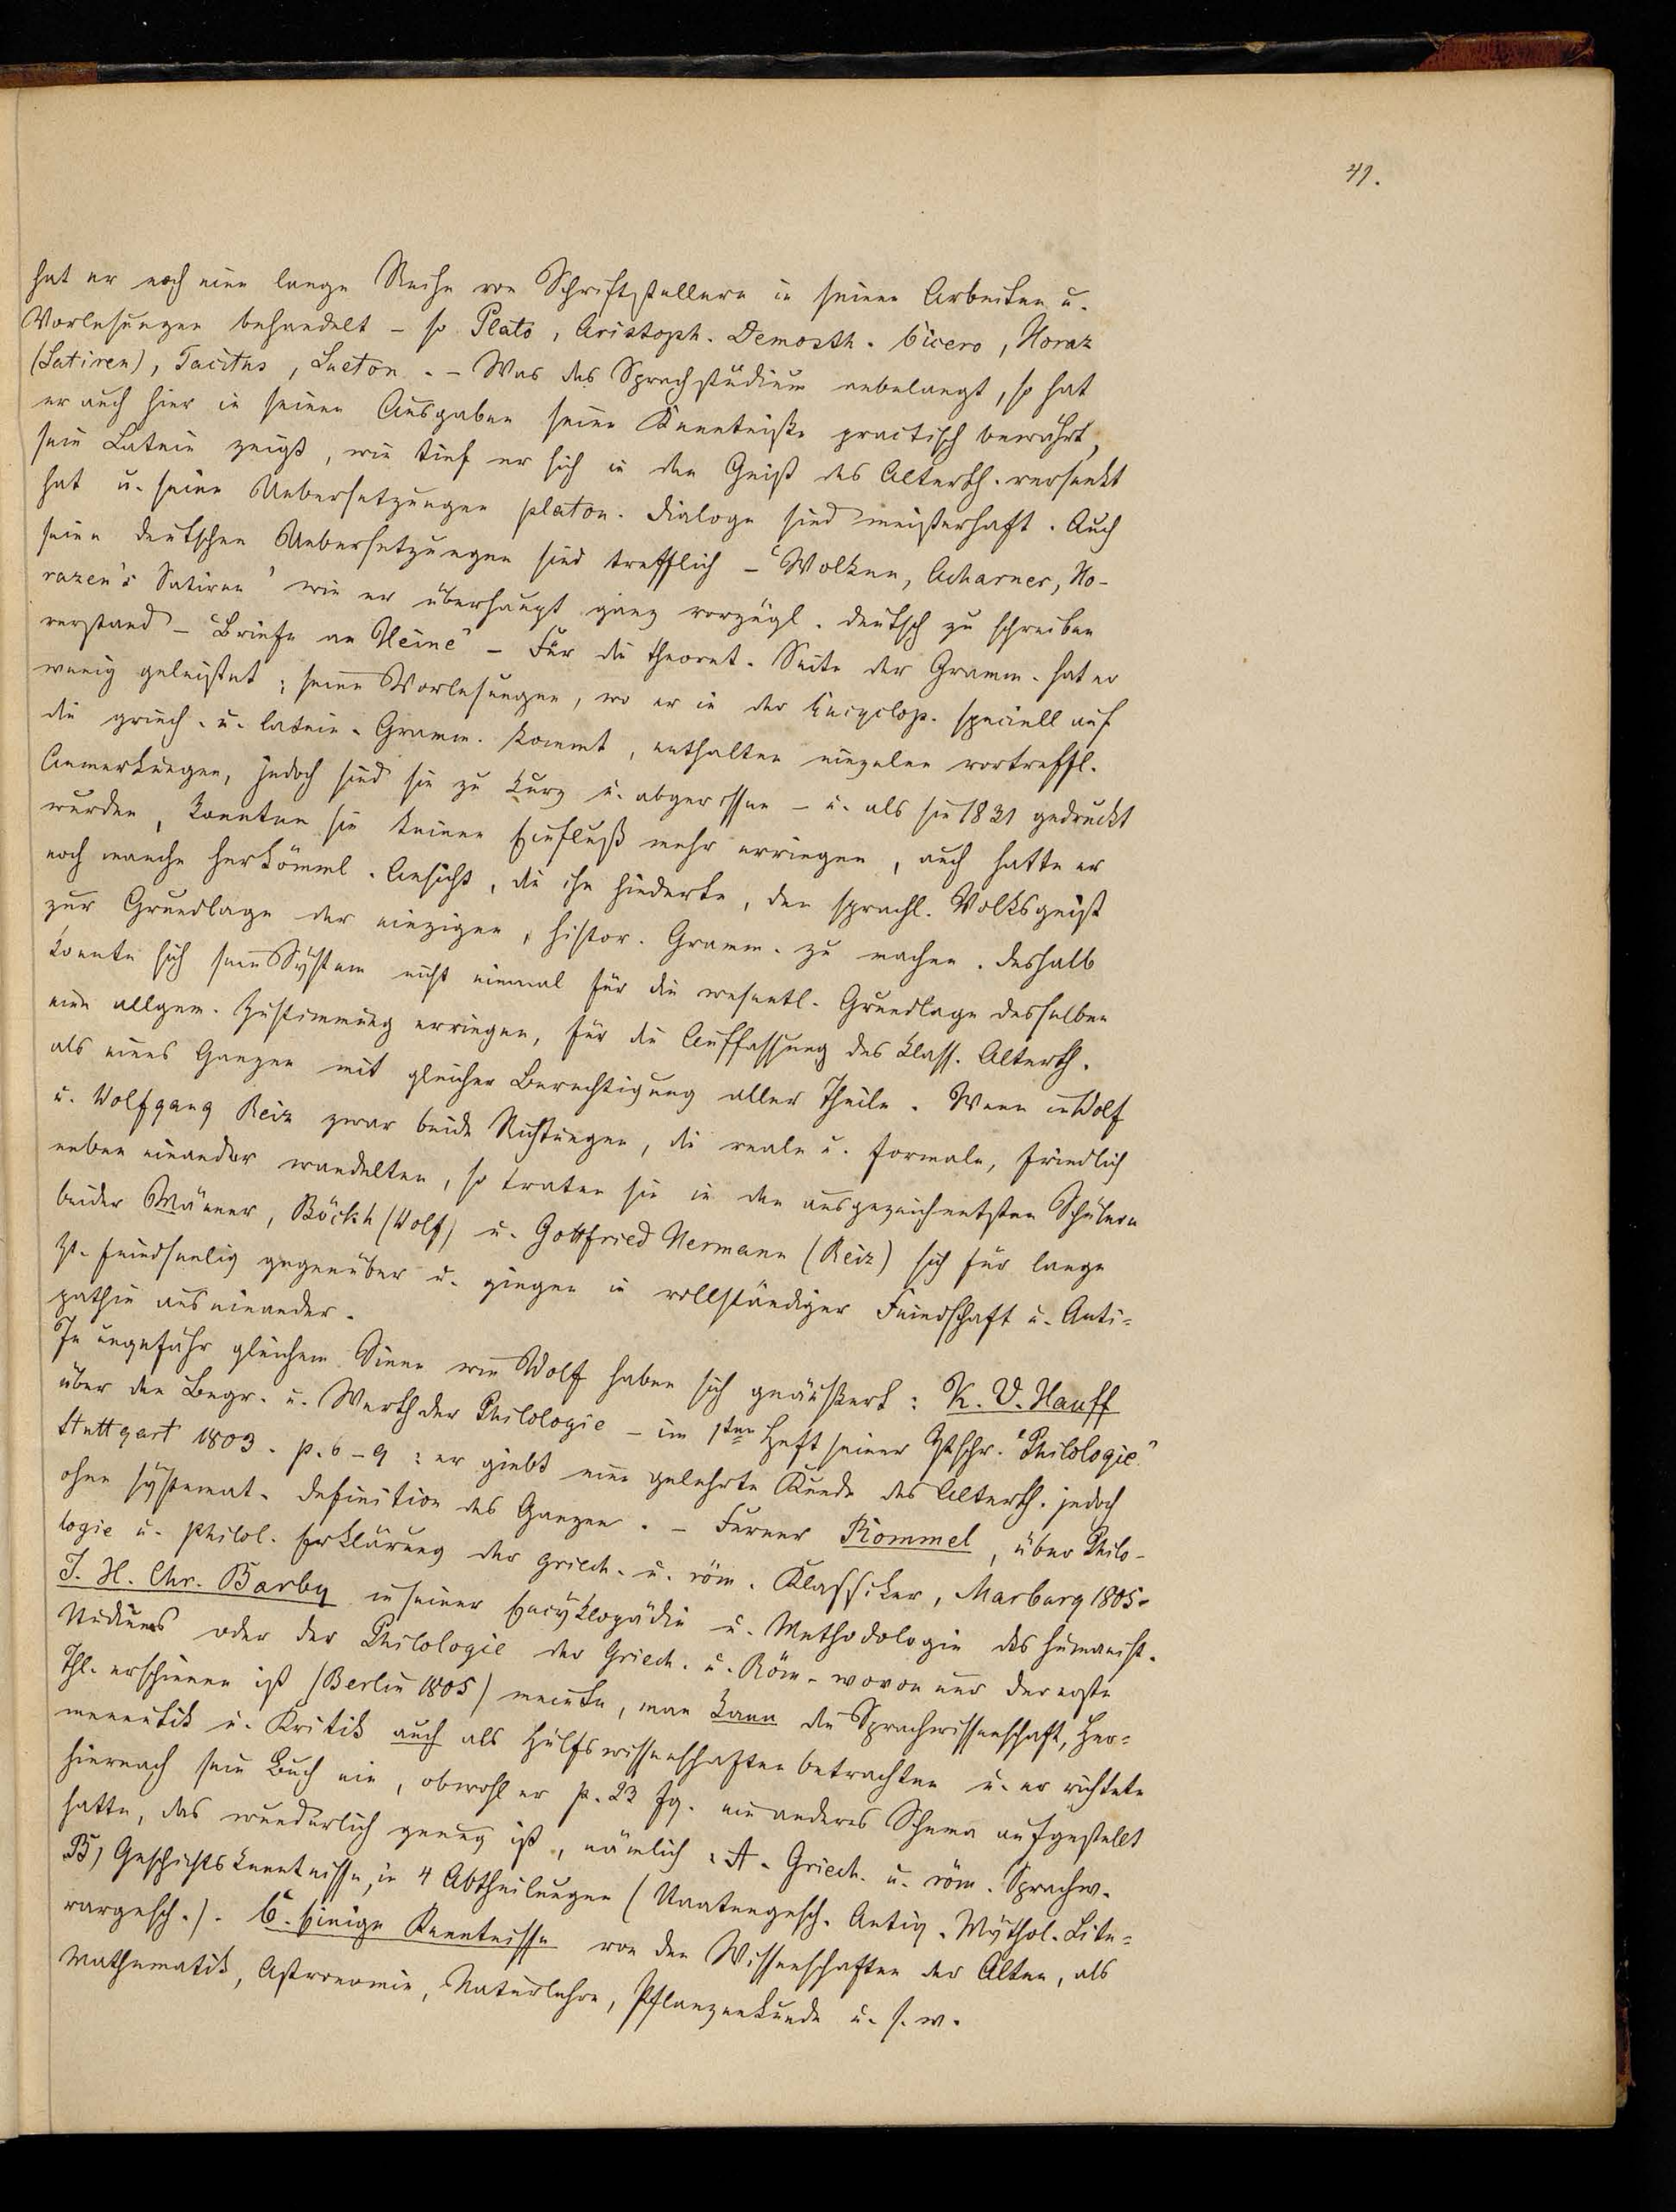 41.
hat er noch eine lange Reihe von Schriftstellern in seinen Arbeiten u.
Vorlesungen behandelt – so Plato, Aristoph. Demosth. Cicero, Horaz
(Satiren), Tacitus, Sueton. – Was das Sprachstudium anbelangt, so hat
er auch hier in seinen Ausgaben seine Kenntniße practisch bewährt,
sein Latein zeigt, wie tief er sich in den Geist des Alterth. versenkt
hat u. seine Uebersetzungen platon. Dialoge sind meisterhaft. Auch
seine deutschen Uebersetzungen sind trefflich – "Wolken, Acharner, Ho-
razen's Satiren" wie er überhaupt ganz vorzügl. deutsch zu schreiben
verstand – "Briefe an Heine" – Für die theoret. Seite der Gramm. hat er
wenig geleistet; seine Vorlesungen, wo er in der Encyclop. speciell auf
die griech. u. latein. Gramm. kommt, enthalten einzelne vortreffl.
Anmerkungen, jedoch sind sie zu kurz u. abgerissen – u. als sie 1831 gedruckt
wurden, konnten sie keinen Einfluß mehr erringen, auch hatte er
noch manche herkömml. Ansicht, die ihn hinderte, den sprachl. Volksgeist
zur Grundlage der einzigen, histor. Gramm. zu machen. Deshalb
konnte sich sein System nicht einmal für die wesentl. Grundlage desselben
eine allgem. Zustimmung erringen, für die Auffassung des klass. Alterth.
als eines Ganzen mit gleicher Berechtigung aller Theile. Wenn in Wolf
u. Wolfgang Reiz zwar beide Richtungen, die reale u. formale, friedlich
neben einander wandelten, so traten sie in den ausgezeichnetsten Schülern
beider Männer, Böckh (Wolf) u. Gottfried Hermann (Reiz) sich für lange
Zt. feindseelig gegenüber u. gingen in vollständiger Feindschaft u. Anti=
pathie auseinander.
In ungefähr gleichem Sinne wie Wolf haben sich geäußert: K. V. Hauff
über den Begr. u. Werth der Philologie – im 1ten Heft seiner Ztschr. "Philologie"
Stuttgart 1803. p. 6–9: er giebt eine gelehrte Kunde des Alterth. jedoch
ohne systemat. Definition des Ganzen. – Ferner Rommel, über Philo-
logie u. philol. Erklärung der griech. u. röm. Klassiker, Marburg 1805.
J. H. Chr. Barby in seiner Encyklopädie u. Methodologie des humanist.
Studiums oder der Philologie der Griech. u. Röm. wovon nur der erste
Thl. erschienen ist (Berlin 1805) meinte, man kann die Sprachwissenschaft, Her=
meneutik u. Kritik auch als Hülfswissenschaften betrachten u. er richtete
hiernach sein Buch ein, obwohl er p. 23 fg. ein anderes Schema aufgestellt
hatte, das wunderlich genug ist, nämlich: A. Griech. u. röm. Sprachw.
B) Geschichtskenntnisse, in 4 Abtheilungen (Staatengesch. Antiq. Mythol. Lite=
rargesch.). C. Einige Kenntnisse von den Wissenschaften der Alten, als
Mathematik, Astronomie, Naturlehre, Pflanzenkunde u. s. w.